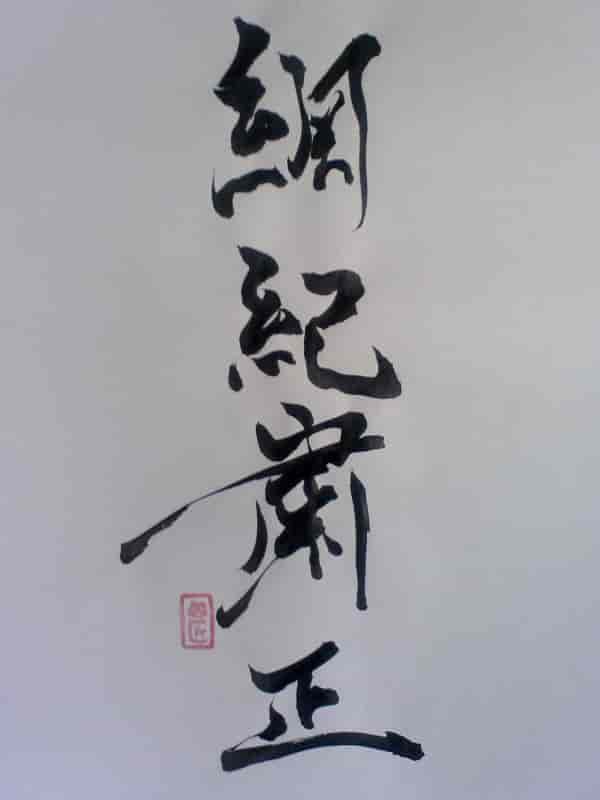 綱紀粛正